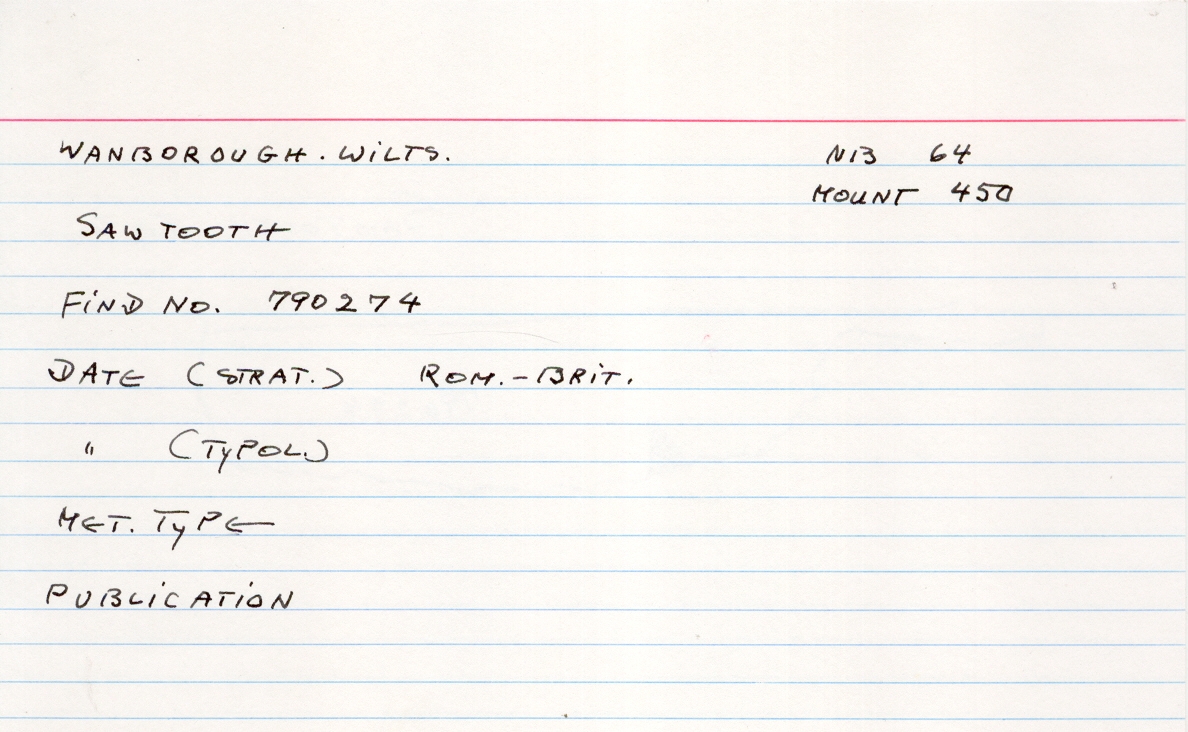 WANBOROUGH. WILTS. NB 64
MOUNT 450
SAW TOOTH
FIND NO. 790274
DATE (STRAT.) ROM.-BRIT.
" (TYPOL.)
MET. TYPE
PUBLICATION